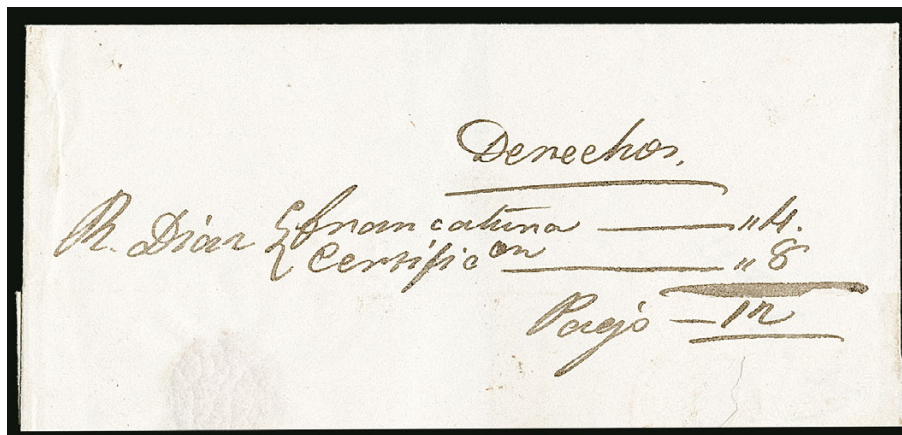 Derechos.
R. Diaz { francatura — " 4.
Certificon — " 8
Pagó — 12